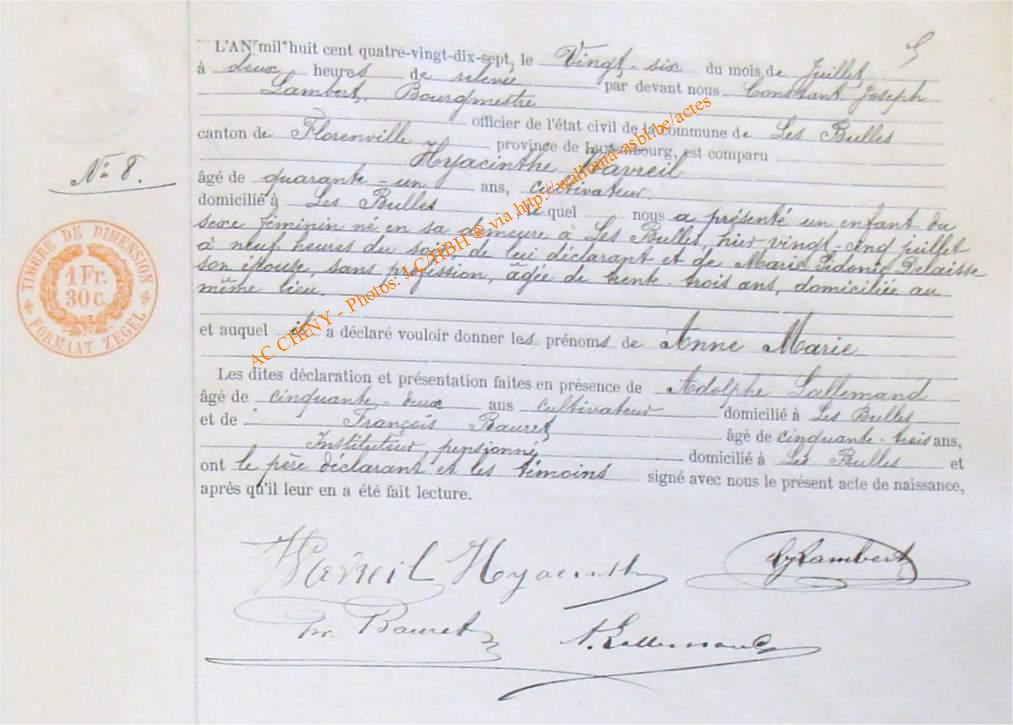 L'AN mil huit cent quatre-vingt-dix-sept, le Vingt-six du mois de Juillet
à deux heures de relevée par devant nous Constant Joseph
Lambert, Bourgmestre
officier de l'état civil de la commune de Les Bulles
canton de Florenville province de Luxembourg, est comparu
Hyacinthe Wavreil
âgé de quarante-un ans, cultivateur.
domicilié à Les Bulles lequel nous a présenté un enfant du
sexe féminin né en sa demeure à Les Bulles, hier vingt-cinq juillet
à neuf heures du soir de lui déclarant et de Marie Sidonie Delaisse
son épouse, sans profession, âgée de trente-trois ans, domiciliée au
même lieu.
et auquel il a déclaré vouloir donner les prénoms de Anne Marie
Les dites déclaration et présentation faites en présence de Adolphe Lallemand
âgé de cinquante-deux ans cultivateur domicilié à Les Bulles
et de François Bauret âgé de cinquante-trois ans,
Instituteur pensionné domicilié à Les Bulles et
ont le père déclarant et les témoins signé avec nous le présent acte de naissance,
après qu'il leur en a été fait lecture.
N° 8.
TIMBRE DE DIMENSION
1 Fr.
30 c.
FORMAAT ZEGEL
AC CHINY - Photos: LC/HBH ® via http://wallonia-asbl.be/actes
Wavreil Hyacinth
Lambert
Fr. Bauret
A. Lallemand